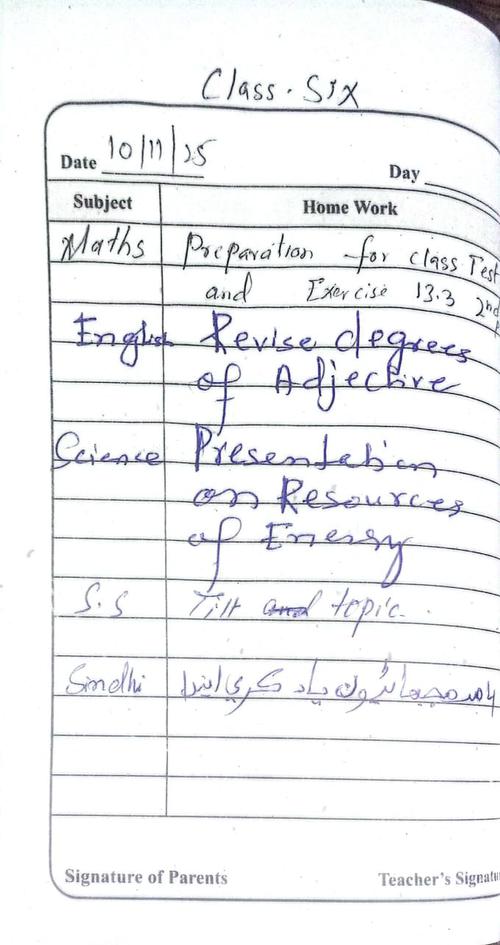 Class. Six
Date 10/11/25
Day
Subject Home Work
Maths Preparation for class Test
and Exercise 13.3 2nd
English Revise degrees
of Adjective
Science Presentation
on Resources
of Energy
S.S topic.
Sindhi ياد ڪري ايندا
Signature of Parents Teacher's Signatu